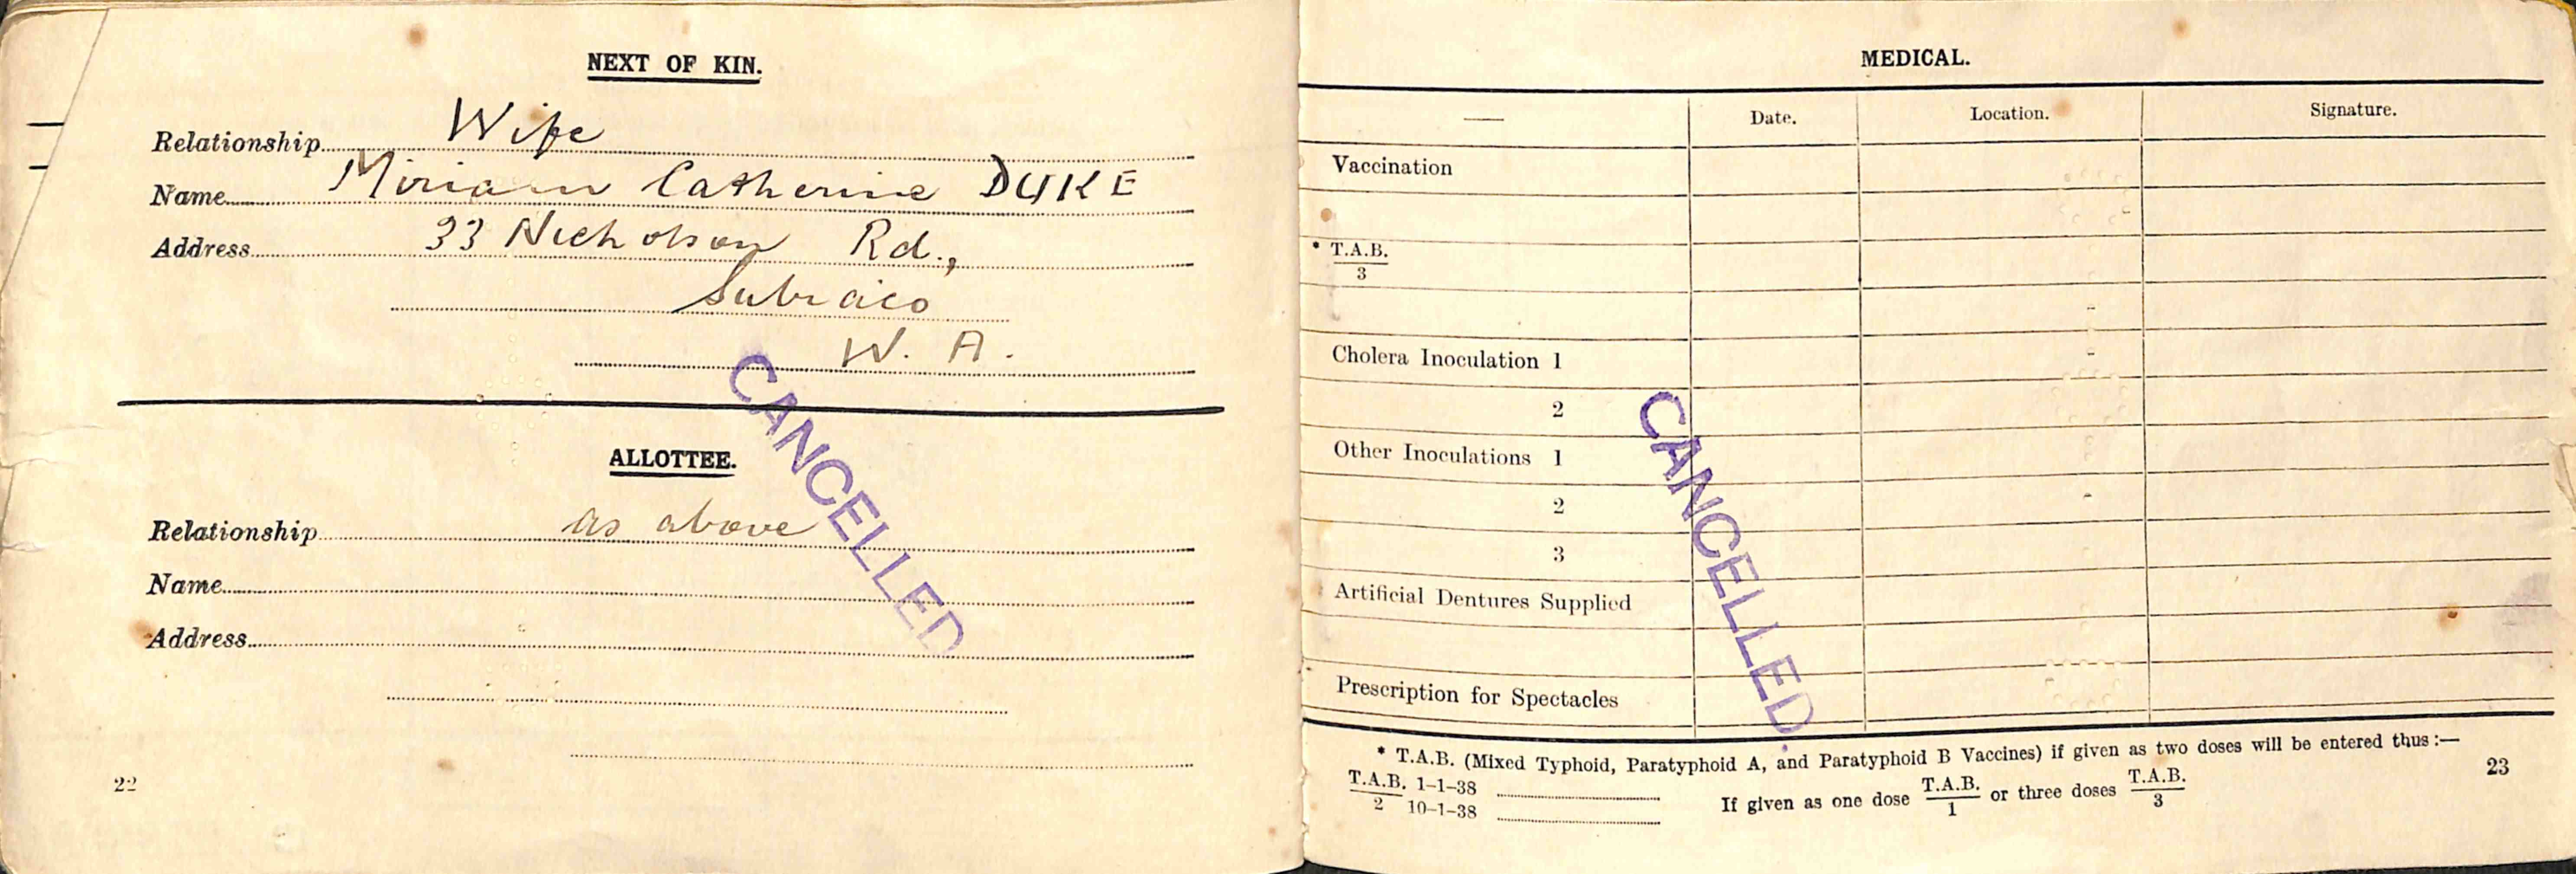 NEXT OF KIN.
Relationship Wife
Name Miriam Catherine DUKE
Address 33 Nicholson Rd.,
Subiaco
W. A.
CANCELLED
ALLOTTEE.
Relationship as above
Name
Address
22
MEDICAL.
— Date. Location. Signature.
Vaccination
* T.A.B.
3
Cholera Inoculation 1
2
CANCELLED.
Other Inoculations 1
2
3
Artificial Dentures Supplied
Prescription for Spectacles
* T.A.B. (Mixed Typhoid, Paratyphoid A, and Paratyphoid B Vaccines) if given as two doses will be entered thus :—
T.A.B./2 1-1-38
10-1-38
If given as one dose T.A.B./1 or three doses T.A.B./3
23